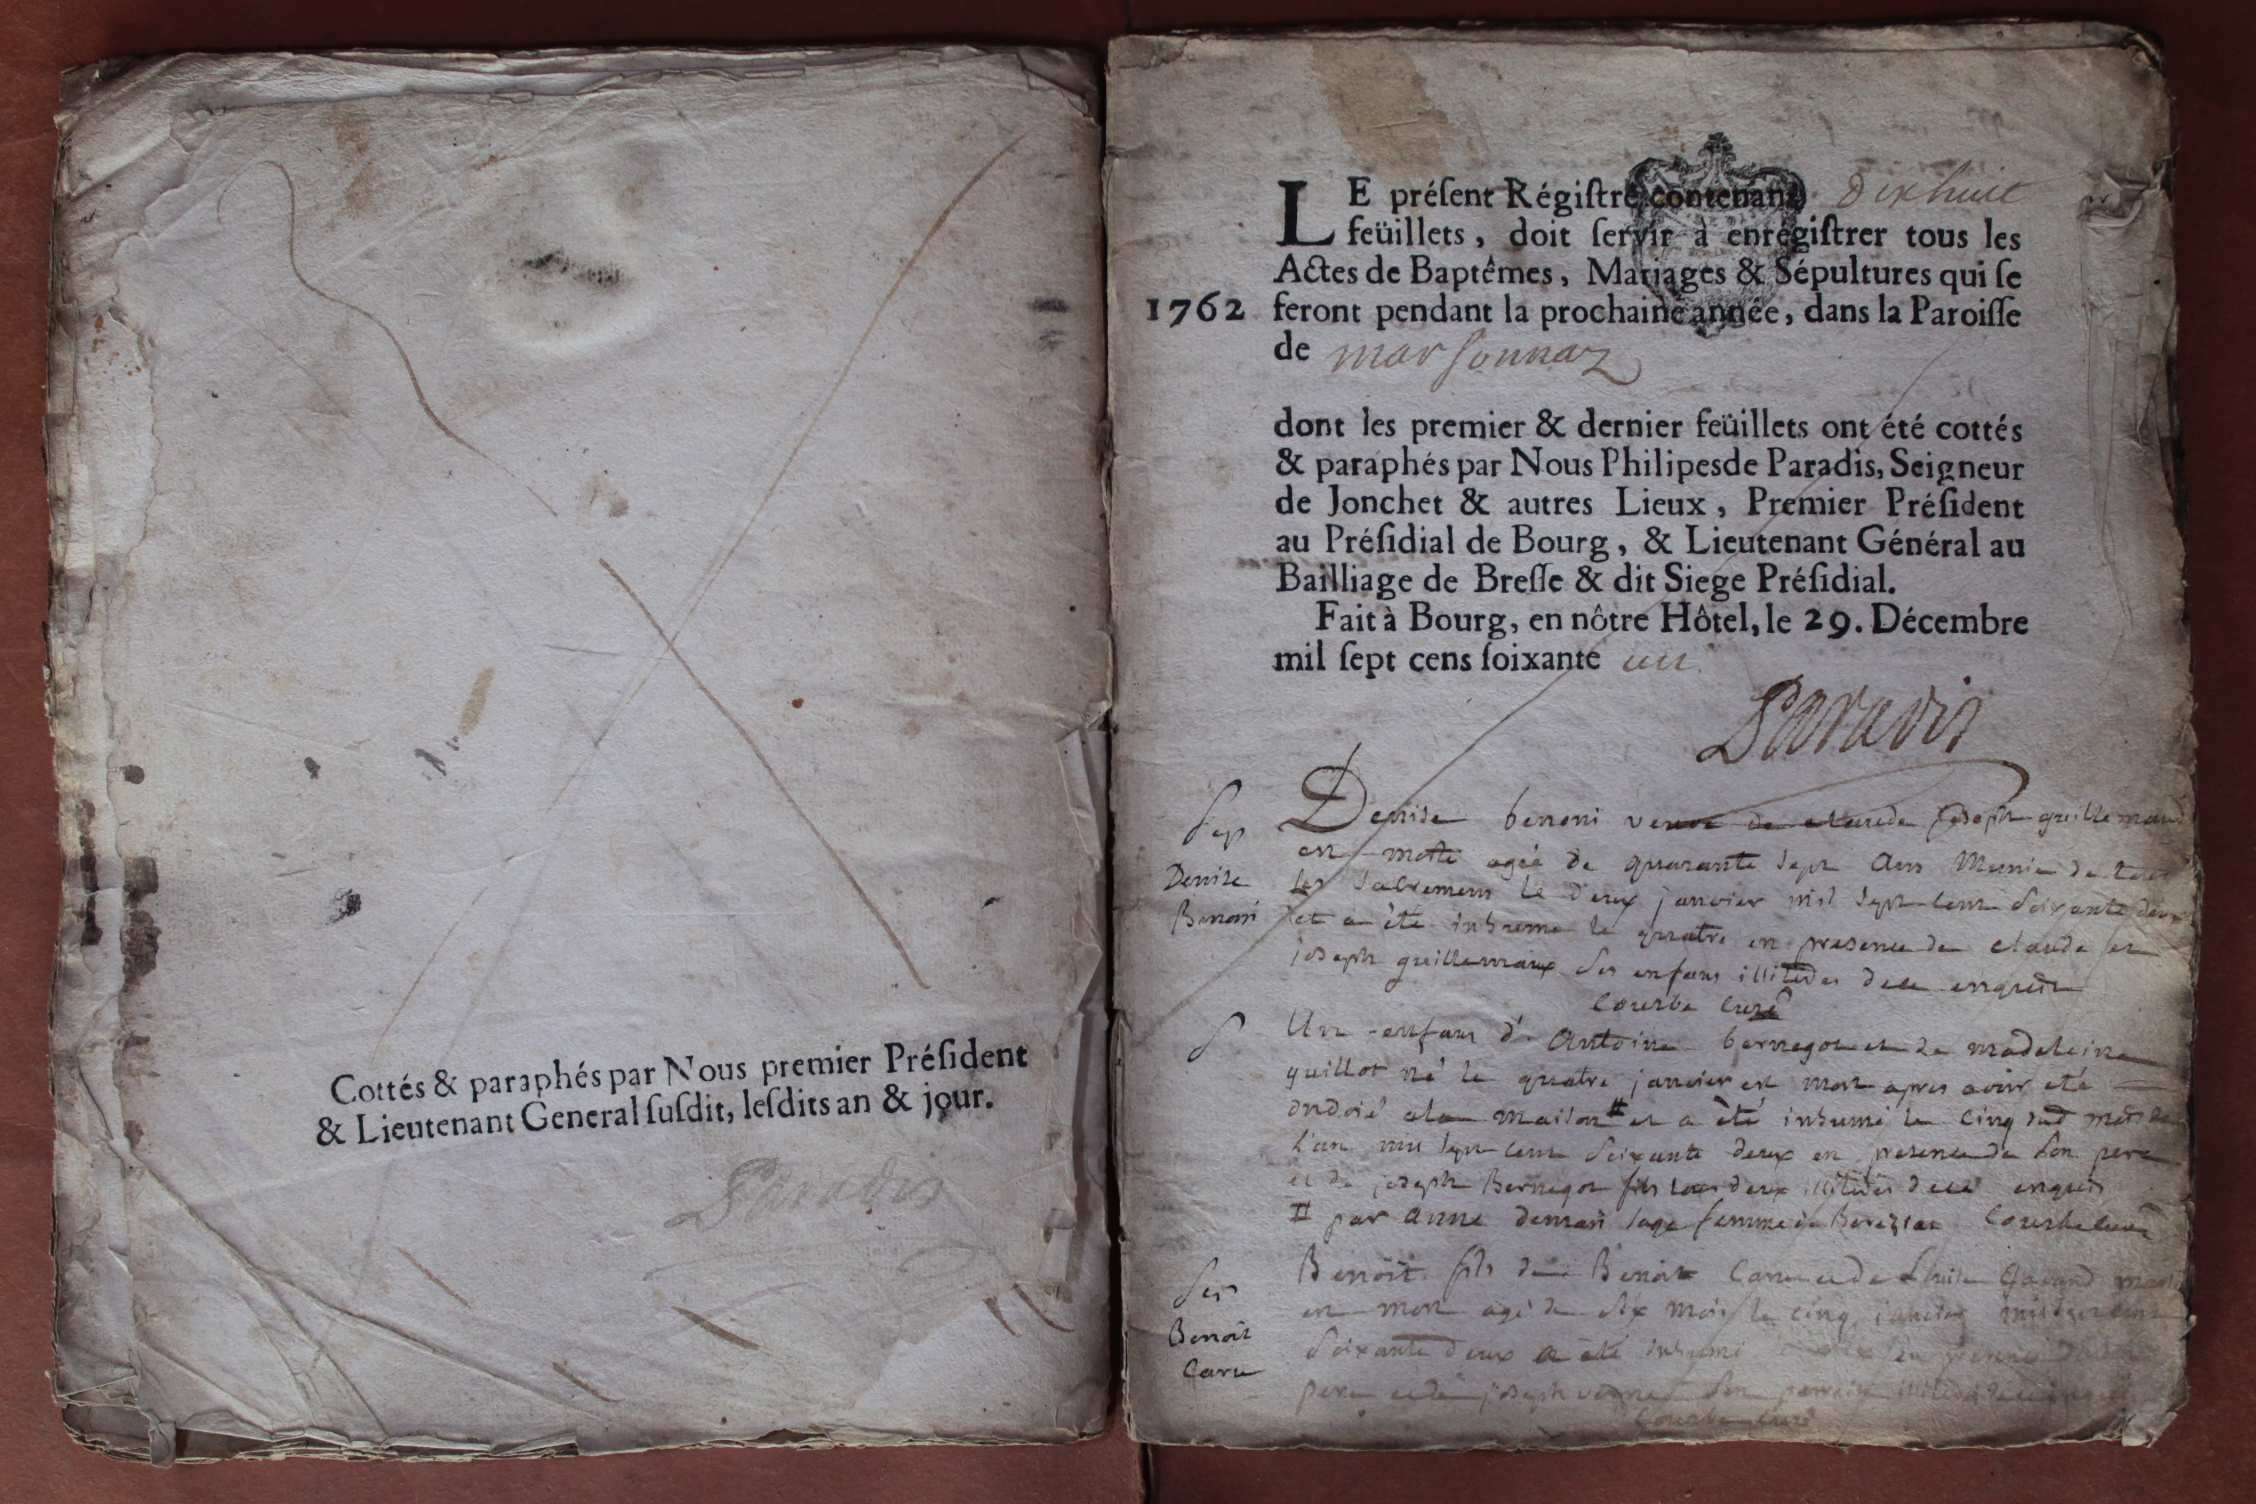 Cottés & paraphés par Nous premier Préſident
& Lieutenant General ſuſdit, leſdits an & jour.
Paradis
LE préſent Régiſtre contenant dixhuit
feüillets, doit ſervir à enrégiſtrer tous les
Actes de Baptêmes, Mariages & Sépultures qui ſe
1762 feront pendant la prochaine année, dans la Paroiſſe
de marsonnaz
dont les premier & dernier feüillets ont été cottés
& paraphés par Nous Philipes de Paradis, Seigneur
de Jonchet & autres Lieux, Premier Préſident
au Préſidial de Bourg, & Lieutenant Général au
Bailliage de Breſſe & dit Siege Préſidial.
Fait à Bourg, en nôtre Hôtel, le 29. Décembre
mil ſept cens ſoixante un
Paradis
Sep
Denise
Benoni
Denise benoni veuve de claude joseph guillemaud
est morte agée de quarante sept ans Munie de tous
les sacremens le deux janvier mil sept cent soixante deux
et a été inhumé le quatre en presence de claude et
joseph guillemaux ses enfans illiterés de ce enquis
Courbe curé
S
Un enfans d'Antoine bernegot et de madeleine
guillot né le quatre janvier est mort apres avoir eté
ondoié a la maison # et a été inhumé le cinq sud mois
l'an mil sept cent soixante deux en presence de son pere
et de joseph Bernegot fils tous deux illiterés de ce enquis
# par anne sage femme Courbe curé
Sep
Benoit
Caru
Benoit fils de Benoit Caru et de
est mort agé de six mois le cinq janvier mil sept cent
soixante deux a été inhumé en presence
pere et de joseph son parrain illiterés de ce
Courbe curé